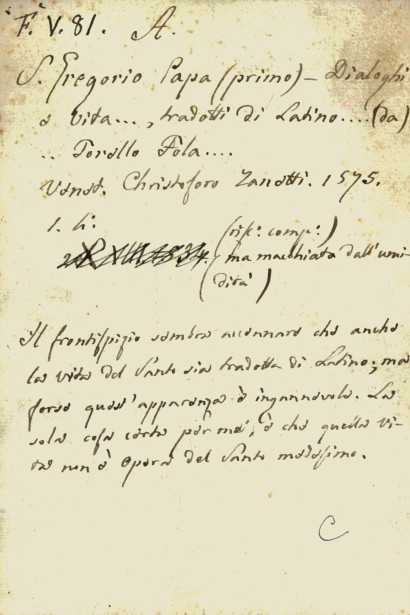 F. V. 81. A.
S. Gregorio Papa (primo) – Dialoghi
e vita..., tradotti di Latino.... (da)
.. Torello Fola....
Venet. Christoforo Zanetti. 1575.
1. li:
(risᵉ: compᵒ:)
ma macchiato dall'umi-
(dità)
Il frontispizio sembra accennare che anche
la vita del Santo sia tradotta di Latino; ma
forse quest'apparenza è ingannevole. La
sola cosa certa per me, è che quella vi-
ta non è opera del Santo medesimo.
C